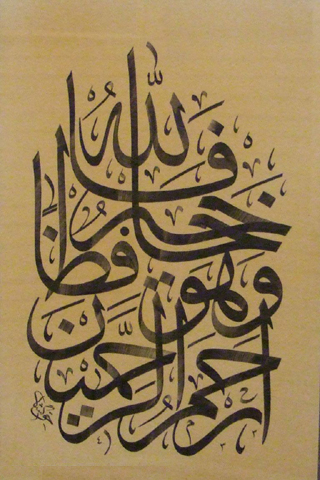 فالله
خير حافظا
وهو
أرحم الراحمين